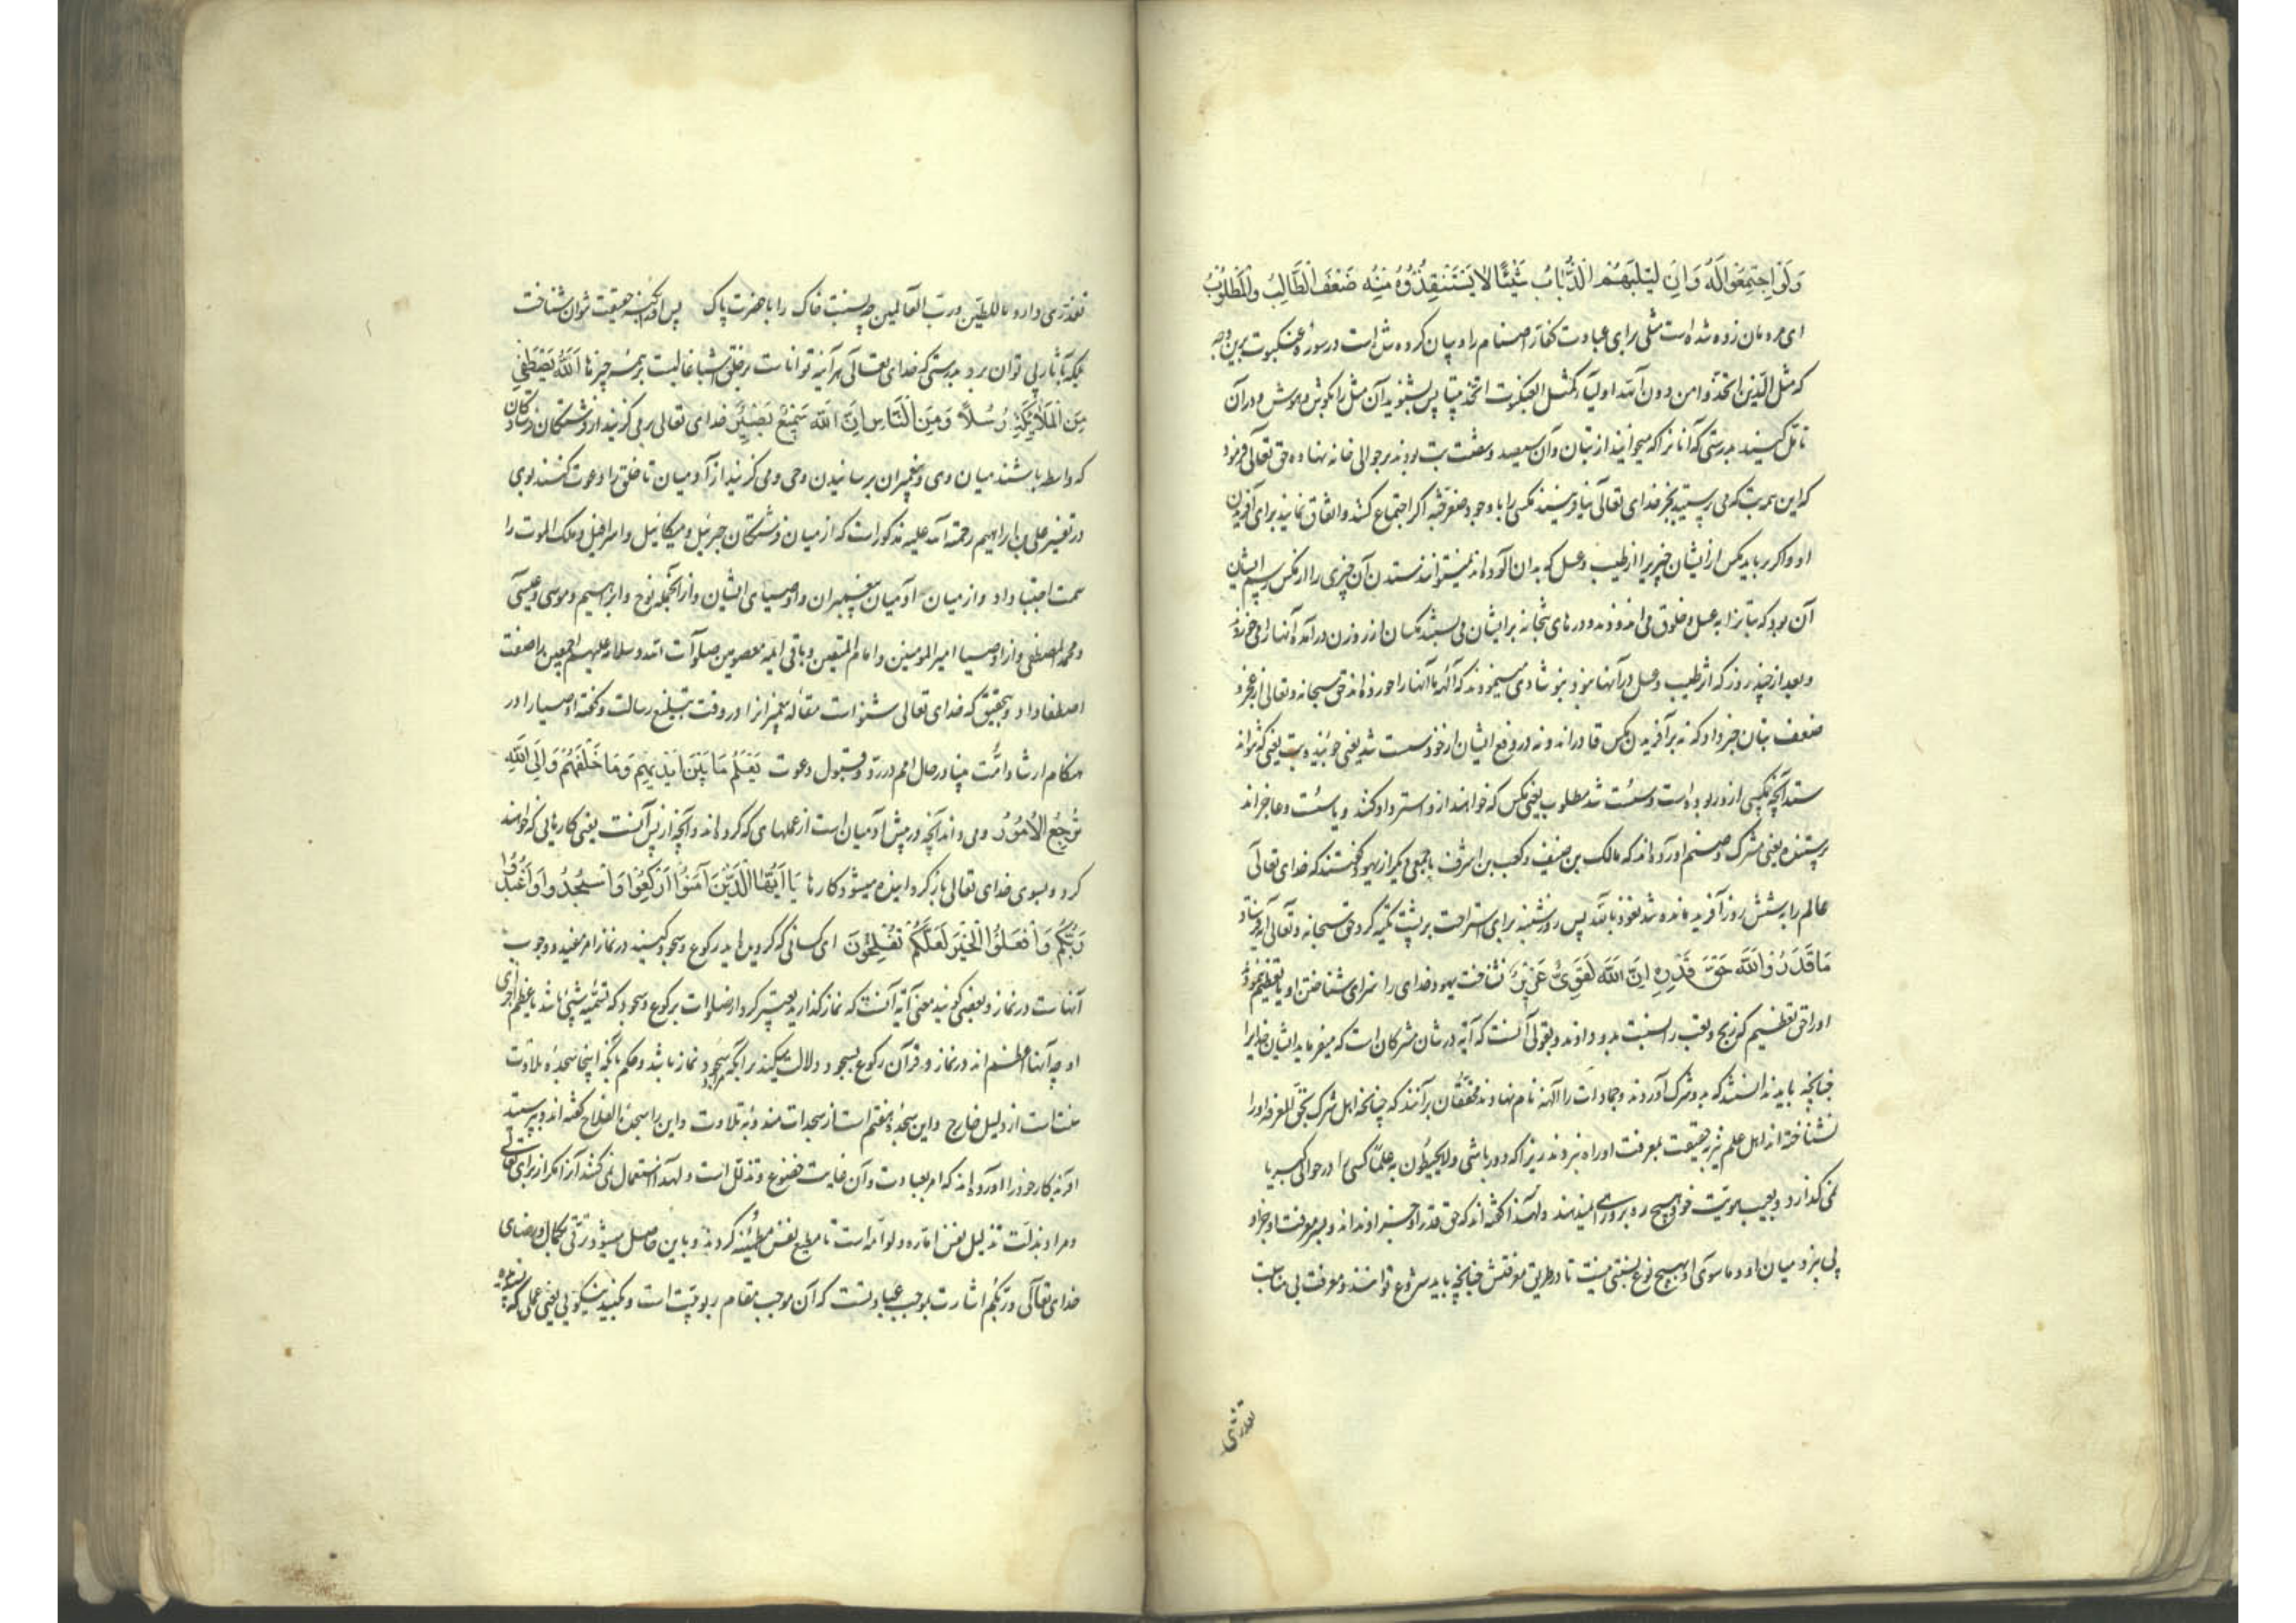 وَلَوِ اجتَمَعُوا لَهُ وَاِن يَسلُبهُمُ الذُّبَابُ شَيئًا لَا يَستَنقِذُوهُ مِنهُ ضَعُفَ الطَّالِبُ وَالمَطلُوبُ
ای مردمان زده شده است مثلی برای عبادت کفار اصنام را و بیان کرده شده است در سوره عنکبوت برین وجه
که مثل الذین اتخذوا من دون الله اولیآء کمثل العنکبوت اتخذت بیتا پس بشنوید آن مثل را بگوش هوش و در آن
تامل کنید بدرستی که آنانرا که میخوانید از بتان و آن سیصد و شصت بت بودند بر حوالی خانه نهاده حق تعالی فرمود
که این همه بت که می پرستید بجز خدای تعالی نیافرینند مکسی را با وجود صغر جثه اکر اجتماع کنند و اتفاق نمایند برای آفریدن
او و اکر برباید مکس از ایشان چیزیرا از طیب و عسل که بدان آلوده اند نمیتوانند ستدن آن چیزی را از مکس رسم ایشان
آن بود که بتانرا به عسل و خلوق می اندودند و درهای بتخانه بر ایشان می بستند مکسان از روزن در آمده آنها را می خوردند
و بعد از چند روز که اثر طیب و عسل در آنها نبود شادی مینمودند که آلهه ما آنها را خورده اند حق سبحانه و تعالی از عجز و
ضعف بتان خبر داد که نه بر آفریدن مکس قادراند و نه در دفع ایشان از خود سست شد یعنی جوینده بت یعنی که نتواند
ستد آنچه مکسی از و ربوده است و سست شد مطلوب یعنی مکس که خواهند از و استرداد کنند و یا سست و عاجزاند
پرستنده یعنی مشرک و صنم آورده اند که مالک بن صیف و کعب بن اشرف با جمعی دیکر از یهود کفتند که خدای تعالی
عالم را بشش روز آفرید مانده شد نعوذ بالله پس روز شنبه برای استراحت بر پشت تکیه کرد حق سبحانه و تعالی آیه فرستاد
مَا قَدَرُوا اللّهَ حَقَّ قَدرِهِ اِنَّ اللّهَ لَقَوِیٌّ عَزِیزٌ نشناخت یهود خدای را سزای شناختن او یا تعظیم ننمود
او را حق تعظیم که رنج و تعب را نسبت بدو دادند و بقولی آنست که آیه در شان مشرکان است که میفرماید ایشان خدایرا
چنانچه باید ندانستند که بدو شرک آوردند و جمادات را آلهه نام نهادند محققان برآنند که چنانچه اهل شرک بحق المعرفه او را
نشناخته اند اهل علم نیز به حقیقت بمعرفت او راه نبردند زیرا که دور باش ولا یحیطون به علما کسی را در حوالی کبریا
نمی کذارد و بغیب هویت خود هیچ ره بروی را نمیدهند و لهذا کفته اند که حق قدر او جز او نداند و بسر معرفت او جز او
پی نبرد میان او و ما سوی او بهیچ نوع نسبتی نیست تا در طریق معرفتش چنانچه باید شروع توانند و معرفت بی مناسبت
تعذری
تعذری دارد ما للطین و رب العالمین چه نسبت خاک را با حضرت پاک پس او را بکنه حقیقت نتوان شناخت
بلکه بآثار پی توان برد بدرستی که خدای تعالی هر آینه تواناست بر خلق اشیا غالبست بر همه چیزها اَللّهُ یَصطَفِی
مِنَ المَلَائِکَةِ رُسُلًا وَمِنَ النَّاسِ اِنَّ اللّهَ سَمِیعٌ بَصِیرٌ خدای تعالی بر می کزیند از فرشتکان فرستادکان
که واسطه باشند میان وی و پیغمبران برسانیدن وحی و می کزیند از آدمیان تا خلق را دعوت کنند بوی
در تفسیر علی بن ابراهیم رحمة الله علیه مذکور است که از میان فرشتکان جبرئیل و میکائیل و اسرافیل و ملک الموت را
سمت اجتبا داد و از میان آدمیان پیغمبران و اوصیای ایشان و از آنجمله نوح و ابراهیم و موسی و عیسی
و محمد المصطفی و از اوصیا امیر المومنین و امام المتقین و باقی ائمه معصومین صلوات الله و سلامه علیهم اجمعین را صفت
اصطفا داد و بتحقیق که خدای تعالی شنواست مقاله پیغمبرانرا در وقت تبلیغ رسالت و کفته اوصیا را در
هنکام ارشاد امت بینا در حال امم در رد و قبول دعوت یَعلَمُ مَا بَینَ اَیدِیهِم وَمَا خَلفَهُم وَاِلَی اللّهِ
تُرجَعُ الاُمُورُ و می داند آنچه در پیش آدمیان است از عملهای که کرده اند و آنچه از پس آنست یعنی کارهایی که خواهند
کرد و بسوی خدای تعالی باز کردانیده میشود کارها یَا اَیُّهَا الَّذِینَ آمَنُوا ارکَعُوا وَاسجُدُوا وَاعبُدُوا
رَبَّکُم وَافعَلُوا الخَیرَ لَعَلَّکُم تُفلِحُونَ ای کسانی که کرویده اید رکوع و سجود کنید در نماز امر مفید وجوب
آنهاست در نماز و بعضی کویند معنی آیه آنست که نماز کذارید تعبیر کرد از صلوات برکوع و سجود که تسمیه شیئ باشد باعظم اجزای
او چه آنها اعظم اند در نماز و قرآن رکوع بسجود دلالت میکند برآنکه مراد سجود نماز باشد و حکم بآنکه اینجا سجده تلاوت
سنت است از دلیل خارج و این سجده هفتم است از سجدات مندوبه تلاوت و این را سجدة الفلاح کفته اند و بپرستید
آفریدکار خود را آورده اند که امر بعبادت و آن غایت خضوع و تذلل است و لهذا استعمال نمی کنند آنرا مکر از برای خدای تعالی
و مراد بذلت تذلیل نفس اماره و لوامه است تا مطیع نفس مطمئنه کردند و باین حاصل میشود ترقی بکمال و رضای
خدای تعالی و ربکم اشارت بموجب عبادتست که آن موجب مقام ربوبیت است و بکنید نیکویی یعنی عملی که ستوده